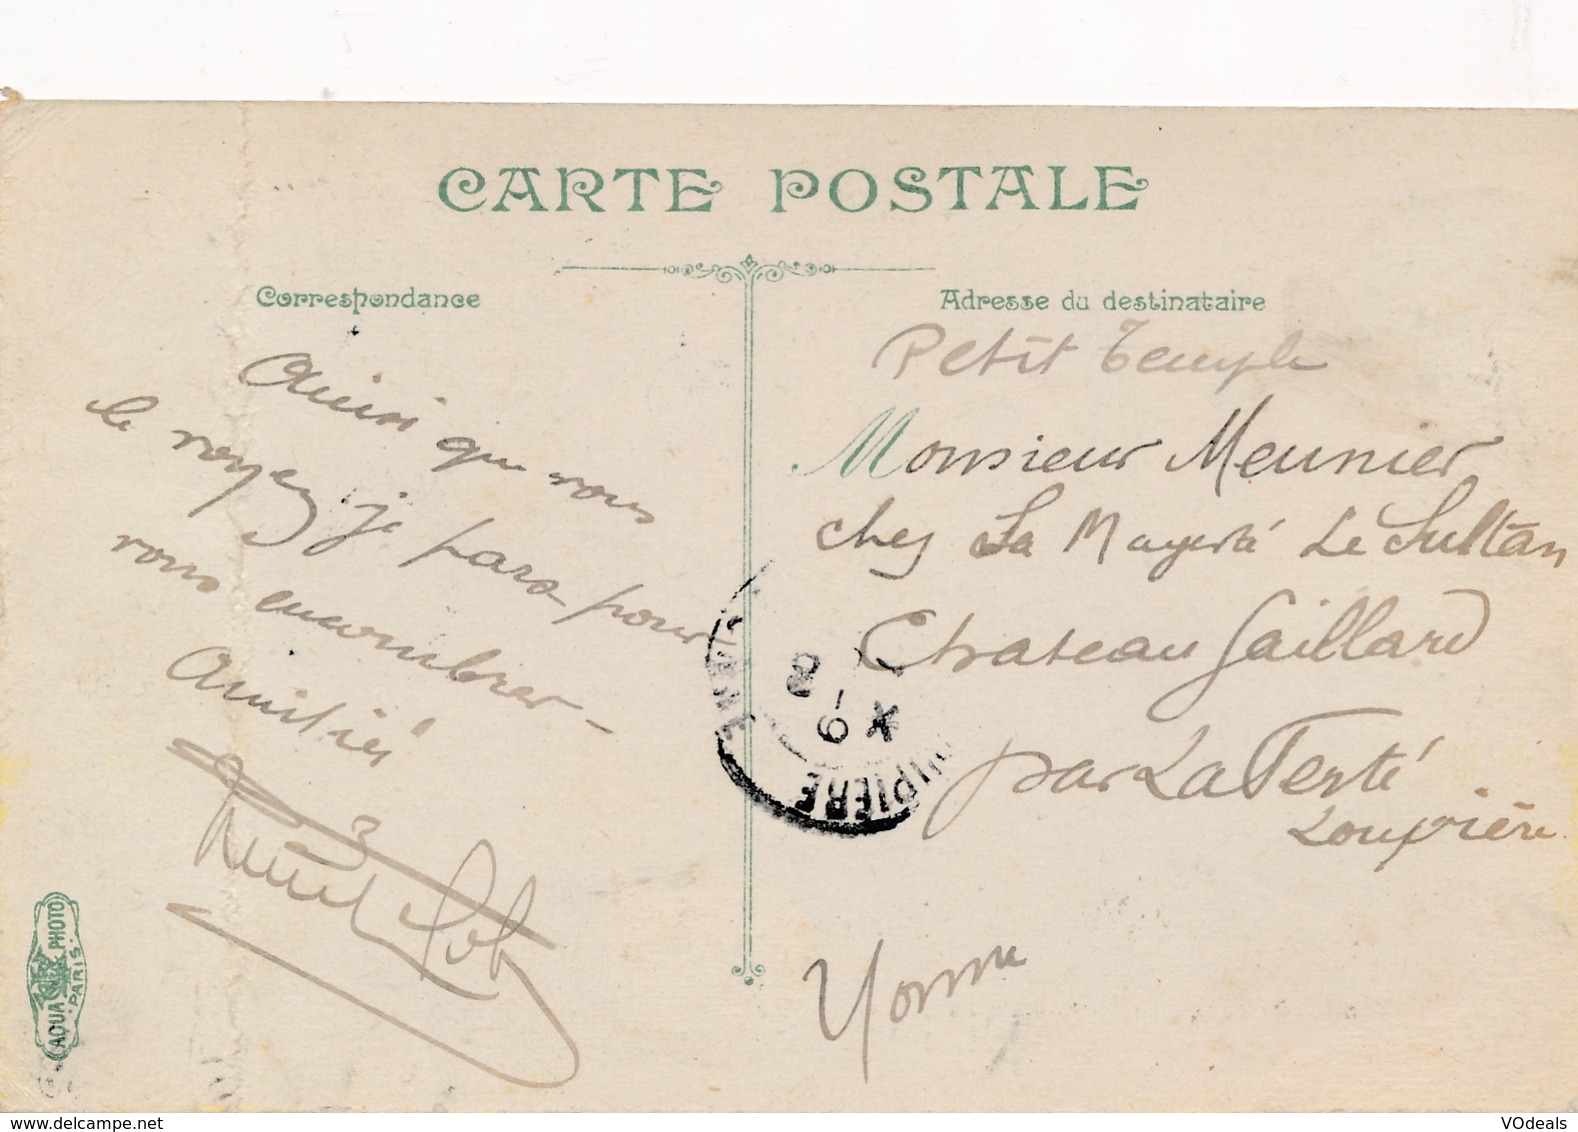 CARTE POSTALE
Correspondance
Ainsi que vous
le voyez je pars pour
vous encombrer –
Amitiés
Adresse du destinataire
Petit Temple
Monsieur Meunier
chez Sa Majesté Le Sultan
Chateau Gaillard
par La Ferté
Loupière
Yonne
8
6-
X
UPIERE
AQUA PHOTO
PARIS
VOdeals